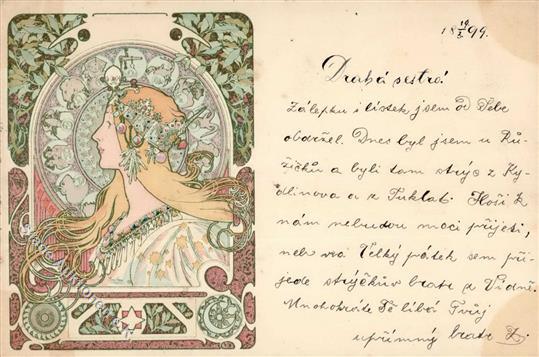 18 19/3 99.
Drahá sestro!
Zálepku i lístek jsem od Tebe
obdržel. Dnes byl jsem u Rů-
žičků a byli tam strýc z Ky-
dlinova a z Puklat. Hoši k
nám nebudou moci přijeti,
nebo na Velký pátek sem při-
jede strýčkův bratr z Vídně.
Mnohokráte Tě líbá Tvůj
upřímný bratr